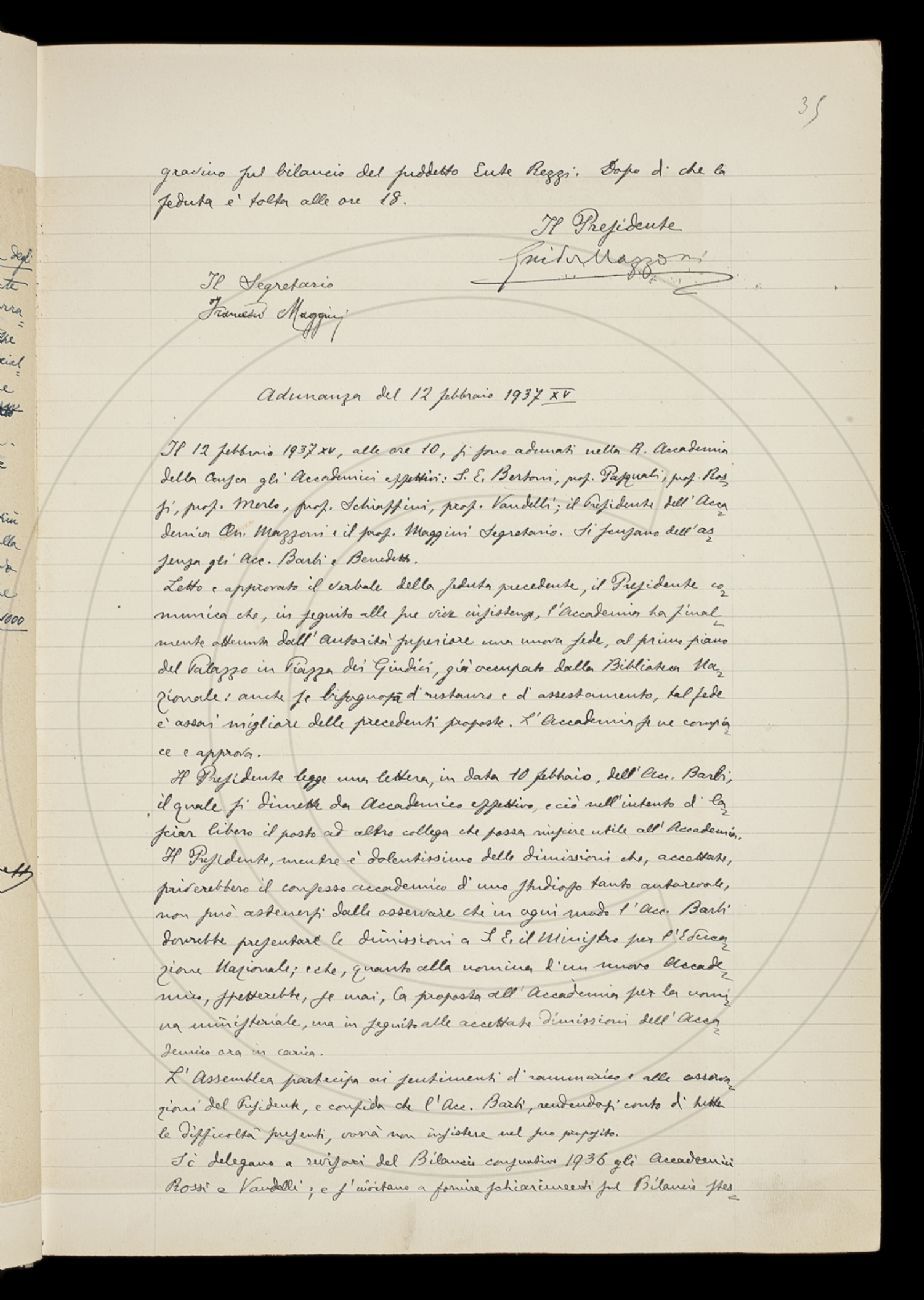 35
gravino sul bilancio del suddetto Ente Reggi. Dopo di che la
seduta è tolta alle ore 18.
Il Presidente
Guido Mazzoni
Il Segretario
Francesco Maggini
Adunanza del 12 febbraio 1937 XV
Il 12 febbraio 1937 XV, alle ore 10, si sono adunati nella R. Accademia
della Crusca gli Accademici effettivi: S. E. Bertoni, prof. Pasquali, prof. Ros
si, prof. Merlo, prof. Schiaffini, prof. Vandelli; il Presidente dell'Acca=
demia On. Mazzoni e il prof. Maggini Segretario. Si scusano dell'as=
senza gli Acc. Barbi e Benedetto.
Letto e approvato il verbale della seduta precedente, il Presidente co=
munica che, in seguito alle sue vive insistenze, l'Accademia ha final=
mente ottenuto dall'Autorità superiore una nuova sede, al primo piano
del Palazzo in Piazza dei Giudici, già occupato dalla Biblioteca Na=
zionale: anche se bisognosa d'restauro e d'assestamento, tal sede
è assai migliore delle precedenti proposte. L'Accademia se ne compia
ce e approva.
Il Presidente legge una lettera, in data 10 febbraio, dell'Acc. Barbi,
il quale si dimette da Accademico effettivo, e ciò nell'intento di la=
sciar libero il posto ad altro collega che possa riuscire utile all'Accademia.
Il Presidente, mentre è dolentissimo delle dimissioni che, accettate,
priverebbero il consesso accademico d'uno studioso tanto autorevole,
non può astenersi dalle osservare che in ogni modo l'Acc. Barbi
dovrebbe presentare le dimissioni a S. E. il Ministro per l'Educa=
zione Nazionale; e che, quanto alla nomina d'un nuovo Accade=
mico, spetterebbe, se mai, la proposta all'Accademia per la nomi=
na ministeriale, ma in seguito alle accettate dimissioni dell'Acca=
demico ora in carica.
L'Assemblea partecipa ai sentimenti di rammarico e alle osserva=
zioni del Presidente, e confida che l'Acc. Barbi, rendendosi conto di tutte
le difficoltà presenti, vorrà non insistere nel suo proposito.
Si delegano a revisori del Bilancio consuntivo 1936 gli Accademici
Rossi e Vandelli; e s'invitano a fornire schiarimenti sul Bilancio stes=